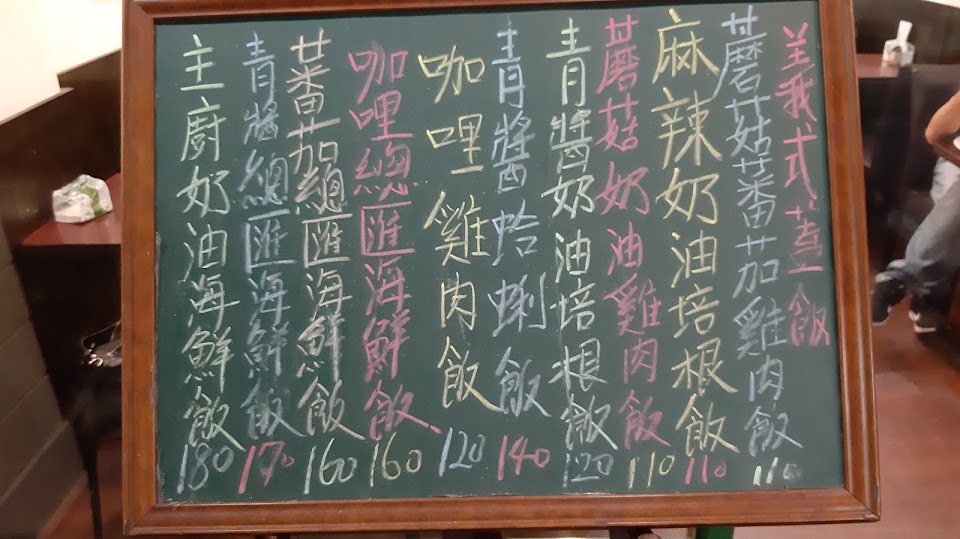 義式煮飯
蘑菇蕃茄雞肉飯 110
麻辣奶油培根飯 110
蘑菇奶油雞肉飯 110
青醬奶油培根飯 120
青醬蛤蜊飯 140
咖哩雞肉飯 120
咖哩總匯海鮮飯 160
蕃茄總匯海鮮飯 160
青醬總匯海鮮飯 170
主廚奶油海鮮飯 180